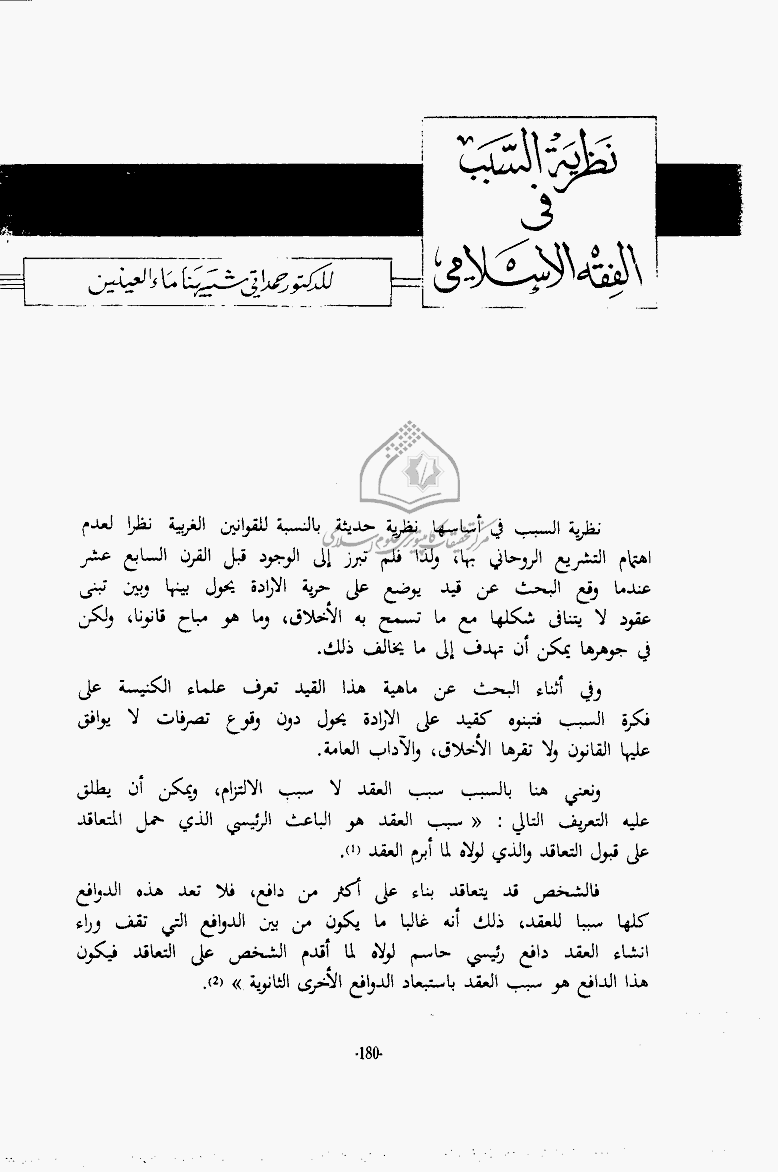 نظرية السبب
في
الفقه الإسلامي
للدكتور حمداتي شبيهنا ماء العينين
نظرية السبب في أساسها نظرية حديثة بالنسبة للقوانين الغربية نظرا لعدم
اهتمام التشريع الروحاني بها، ولذا فلم تبرز إلى الوجود قبل القرن السابع عشر
عندما وقع البحث عن قيد يوضع على حرية الارادة يحول بينها وبين تبنى
عقود لا يتنافى شكلها مع ما تسمح به الأخلاق، وما هو مباح قانونا، ولكن
في جوهرها يمكن أن تهدف إلى ما يخالف ذلك.
وفي أثناء البحث عن ماهية هذا القيد تعرف علماء الكنيسة على
فكرة السبب فتبنوه كقيد على الارادة يحول دون وقوع تصرفات لا يوافق
عليها القانون ولا تقرها الأخلاق، والآداب العامة.
ونعني هنا بالسبب سبب العقد لا سبب الالتزام، ويمكن أن يطلق
عليه التعريف التالي : « سبب العقد هو الباعث الرئيسي الذي حمل المتعاقد
على قبول التعاقد والذي لولاه لما أبرم العقد (1).
فالشخص قد يتعاقد بناء على أكثر من دافع، فلا تعد هذه الدوافع
كلها سببا للعقد، ذلك أنه غالبا ما يكون من بين الدوافع التي تقف وراء
انشاء العقد دافع رئيسي حاسم لولاه لما أقدم الشخص على التعاقد فيكون
هذا الدافع هو سبب العقد باستبعاد الدوافع الأخرى الثانوية » (2).
-180-